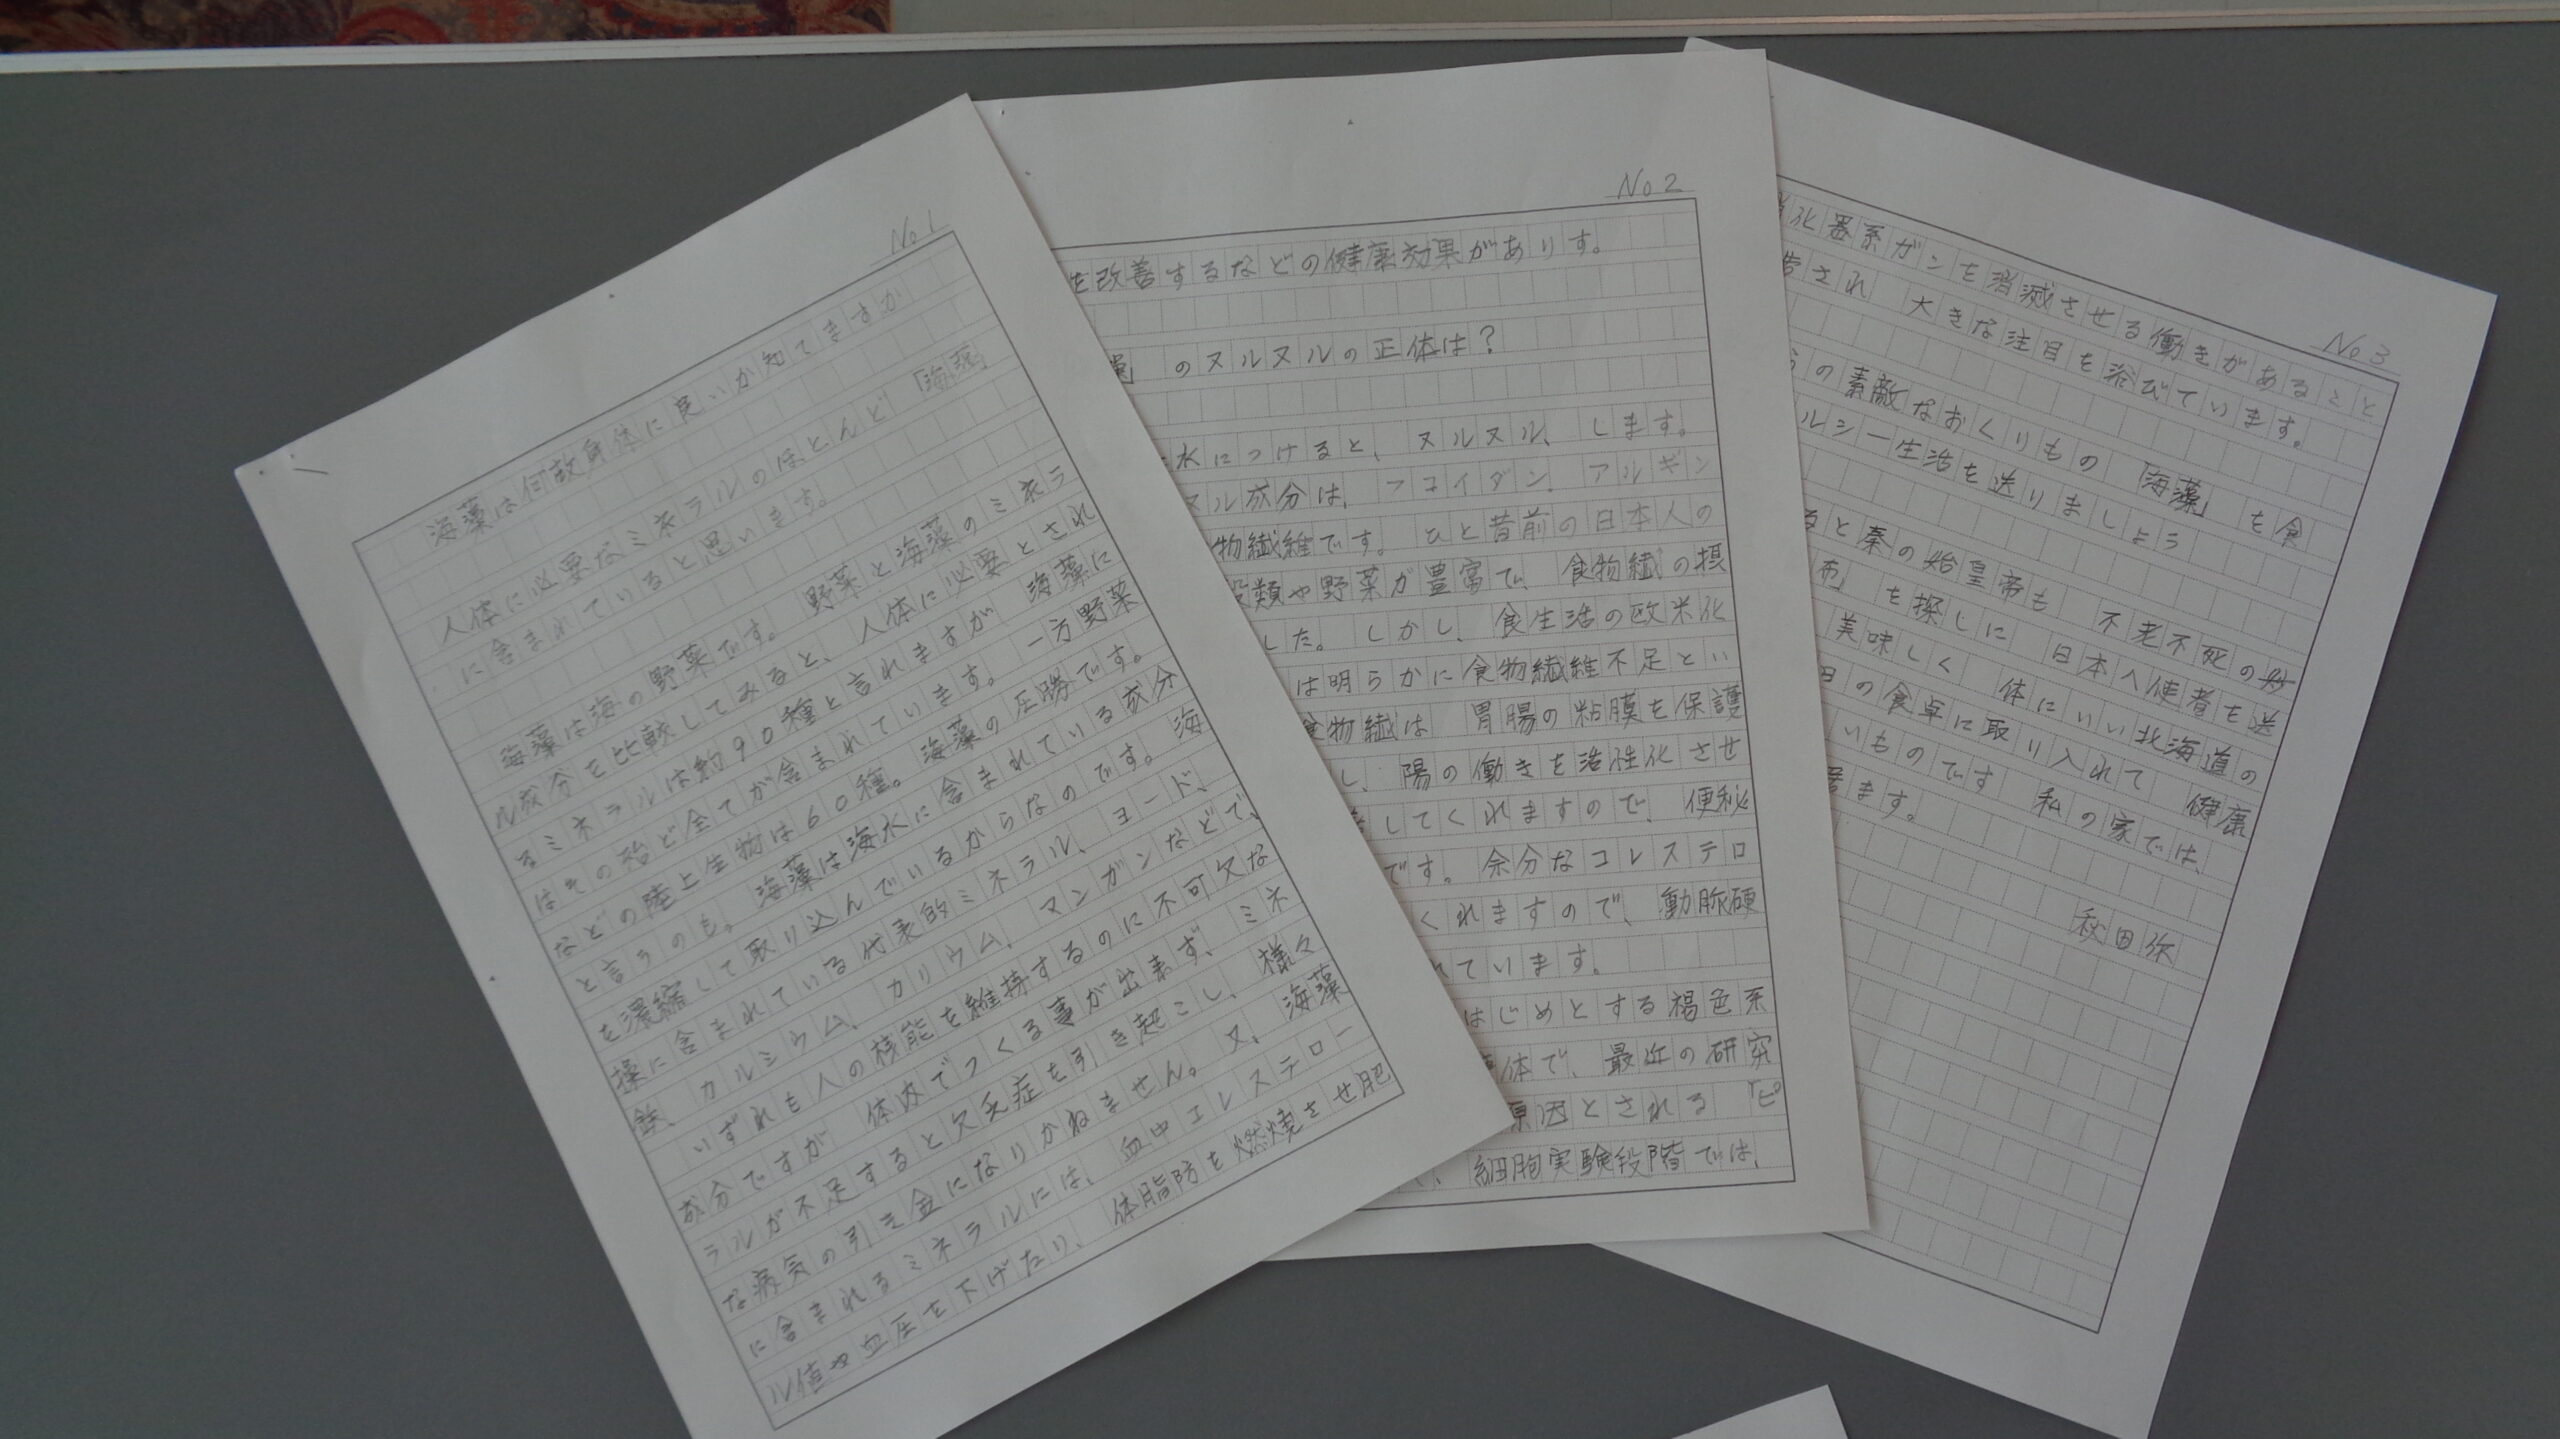 No 1
海藻は何故身体に良いか知てますか
人体に必要なミネラルのほとんど「海藻」
に含まれていると思います。
海藻は海の野菜です。野菜と海藻のミネラ
ル成分を比較してみると、人体に必要とされ
るミネラルは約90種と言れますが 海藻に
はその殆ど全てが含まれています。一方野菜
などの陸上生物は60種。海藻の圧勝です。
と言うのも。海藻は海水に含まれている成分
を濃縮して取り込んでいるからなのです。海
藻に含まれている代表的ミネラル、ヨード、
鉄、カルシウム、カリウム、マンガンなどで、
いずれも人の機能を維持するのに不可欠な
成分ですが 体内でつくる事が出来ず、ミネ
ラルが不足すると欠乏症を引き起こし、様々
な病気の引き金になりかねません。又、海藻
に含まれるミネラルには、血中コレステロー
ル値や血圧を下げたり、体脂防を燃焼させ肥
No 2
を改善するなどの健康効果がありす。
」のヌルヌルの正体は?
水につけると、ヌルヌル、します。
ヌル成分は、フコイダン、アルギン
物繊維です。ひと昔前の日本人の
穀類や野菜が豊富で、食物繊の摂
した。しかし、食生活の欧米化
は明らかに食物繊維不足とい
食物繊は 胃腸の粘膜を保護
し、陽の働きを活性化させ
してくれますので、便秘
です。余分なコレステロ
くれますので、動脈硬
れています。
はじめとする褐色系
体で、最近の研究
原因とされる「ピ
、細胞実験段階では、
No 3
化器系ガンを消滅させる働きがあること
告され 大きな注目を浴びています。
らの素敵なおくりもの「海藻」を食
ルシー生活を送りましょう
ると秦の始皇帝も 不老不死の妙
布」を探しに 日本へ使者を送
美味しく 体にいい北海道の
日の食卓に取り入れて 健康
いものです 私の家では、
ます。
秋田